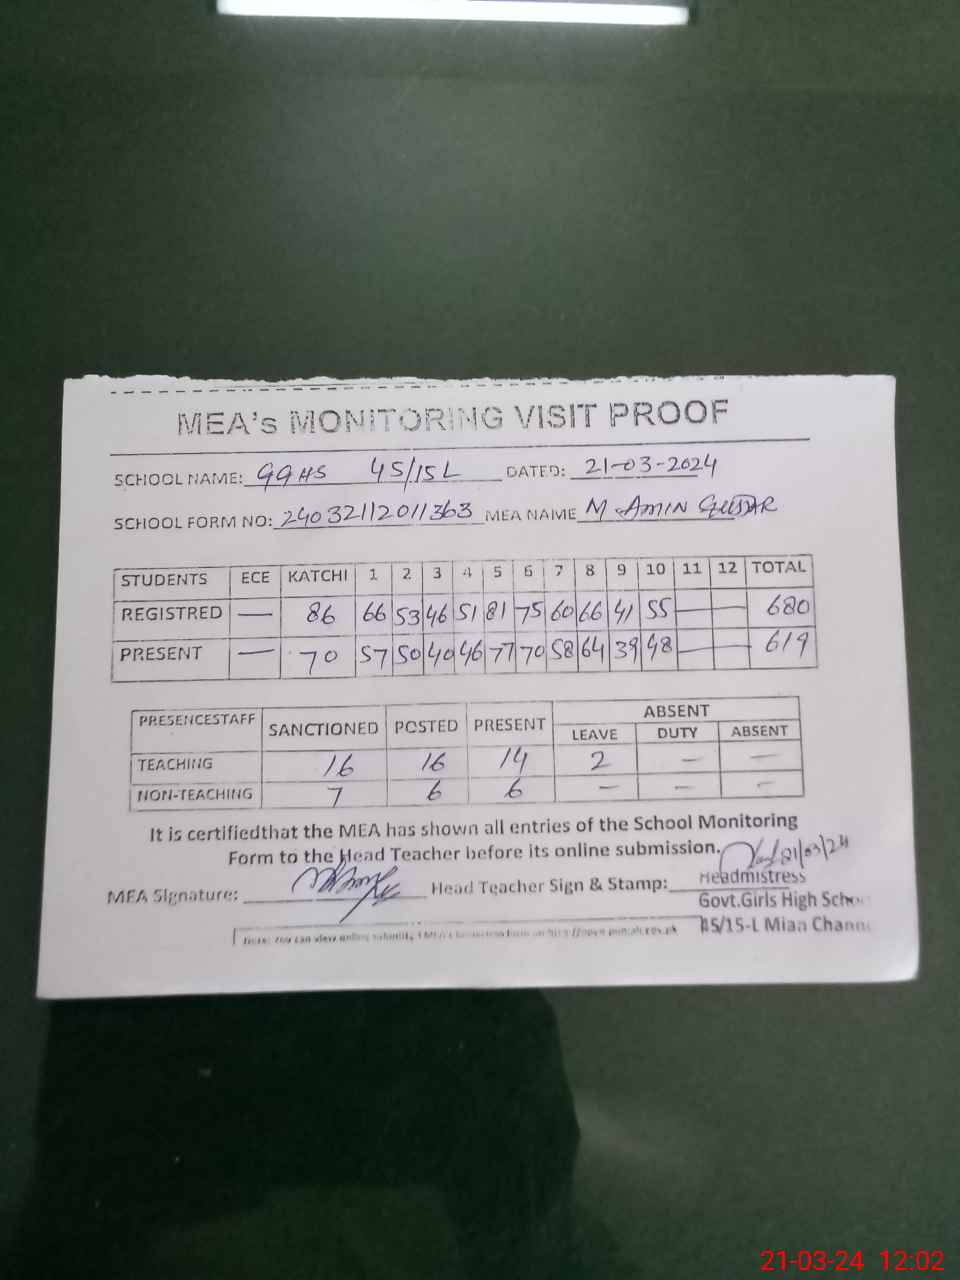 MEA's MONITORING VISIT PROOF
SCHOOL NAME: GGHS 45/15L DATED: 21-03-2024
SCHOOL FORM NO: 24032112011363 MEA NAME M AMIN
STUDENTS ECE KATCHI 1 2 3 4 5 6 7 8 9 10 11 12 TOTAL
REGISTRED — 86 66 53 46 51 81 75 60 66 41 55 — — 680
PRESENT — 70 57 50 40 46 77 70 58 64 39 48 — — 619
PRESENCESTAFF SANCTIONED POSTED PRESENT ABSENT
LEAVE DUTY ABSENT
TEACHING 16 16 14 2 — —
NON-TEACHING 7 6 6 — — —
It is certifiedthat the MEA has shown all entries of the School Monitoring
Form to the Head Teacher before its online submission.
21/03/24
MEA Signature: Head Teacher Sign & Stamp:
Headmistress
Govt.Girls High Schoo
45/15-L Mian Channu
Note: You can view online
21-03-24 12:02